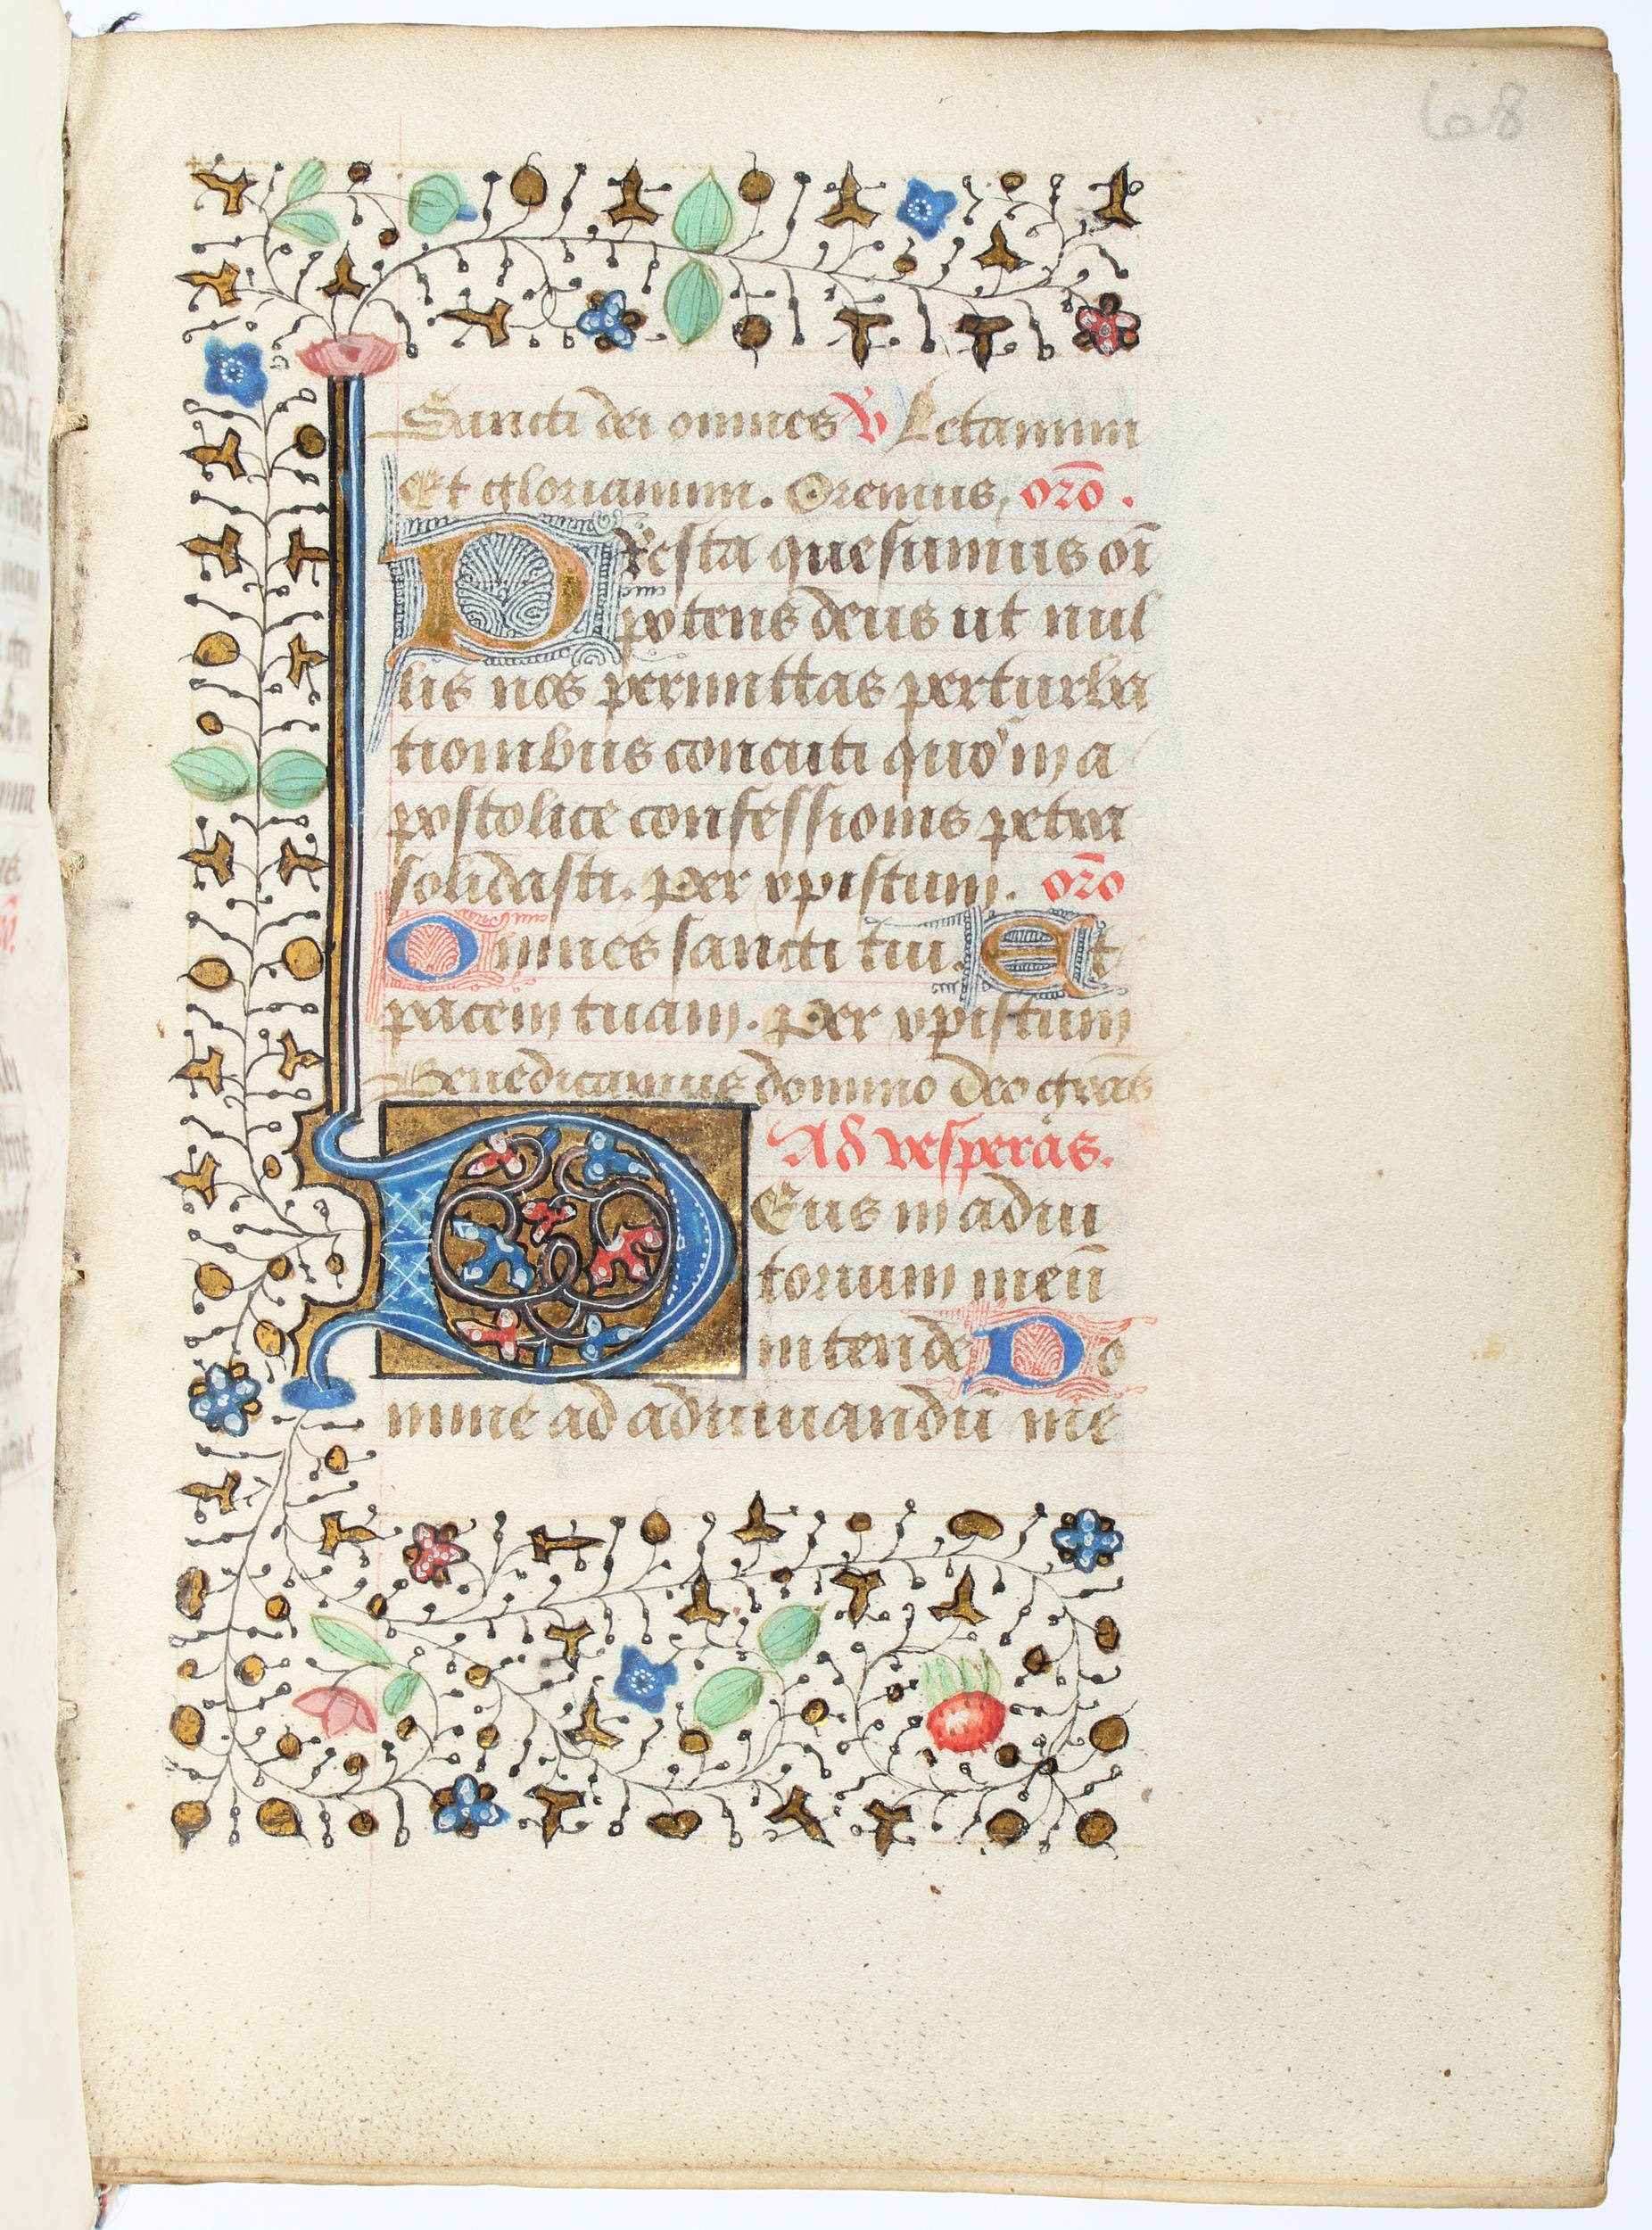 68
Sancti dei omnes ℣ Letamini
Et gloriamini. Oremus, orõ.
PResta quesumus oī
potens deus ut nul
lis nos permittas perturba
tionibus concuti quos in a
postolice confessionis petra
solidasti. Per xpistum. orõ
Omnes sancti tui. Et
pacem tuam. Per xpistum
Benedicamus domino deo gras̄
Ad vesperas.
DEus in adiu
torium meū
intende Do
mine ad adiuuandū me